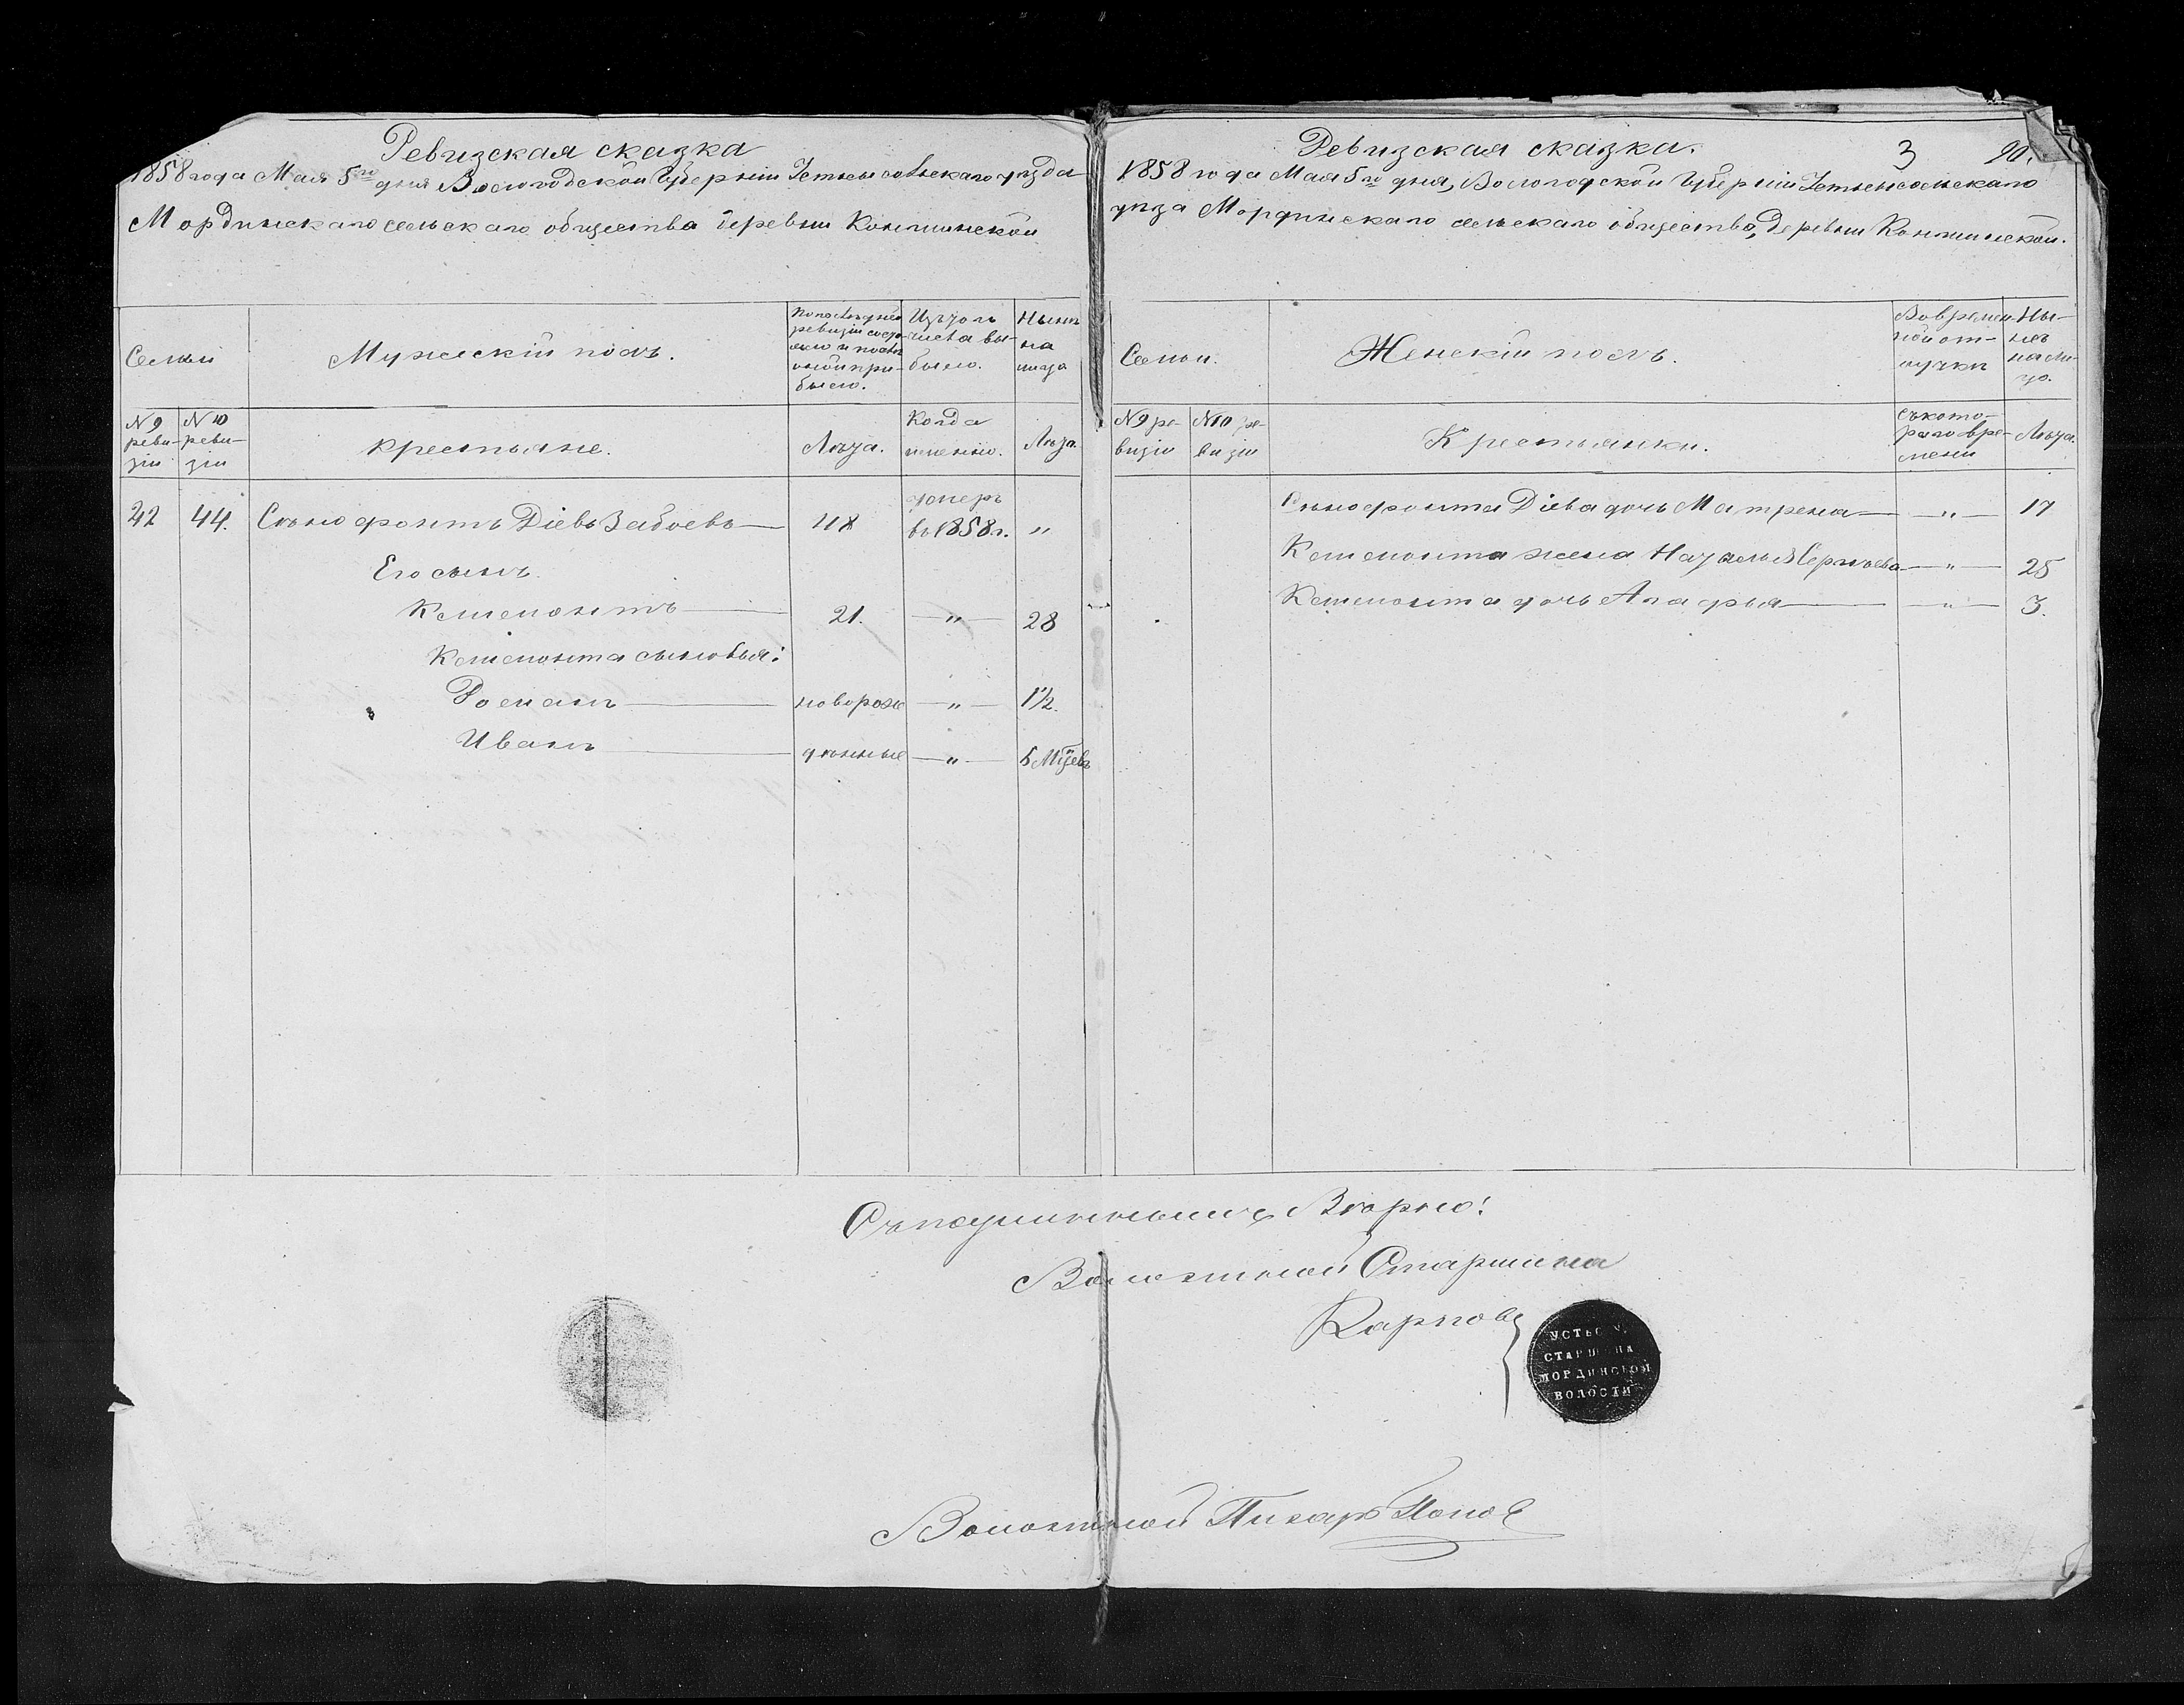 Ревизская сказка
1858 года Мая 5го дня Вологодской Губерніи Устьсысольскаго уѣзда
Мординскаго сельскаго общества деревни Конминской
Семьи
Мужескій полъ.
По послѣдней
ревизіи состо-
яло и послѣ
оной при-
было.
Изъ того
числа вы-
было.
Нынѣ
на
лицо
№ 9
реви-
зіи
№ 10
реви-
зіи
крестьяне.
Лѣта.
Когда
именно.
Лѣта.
42 44. Ѳеофонтъ Діевъ Забоевъ 48 умеръ въ 1858 г. "
Его сынъ
Клеменонтъ 21. " 28
сыновья:
Романъ новорож " 1½.
Иванъ денные " 5 Мцевъ
Ревизская сказка.
3
90.
1858 года Мая 5го дня, Вологодской Губерніи Устьсысольскаго
уѣзда Мординскаго сельскаго общества, деревни Конминской.
Семьи.
Женскій полъ.
Во времен-
ной от-
лучки
Ны-
нѣ
на ли-
цо.
№ 9 ре-
визіи
№ 10 ре-
визіи
Крестьянки.
съ кото-
раго вре-
мени
Лѣта.
Діева дочь Матрена " 17
жена Наталья Сергѣева " 25
дочь Агафья " 3.
Съ подлиннымъ Вѣрно:
Волостной Старшина
Карповъ
УСТЬС
СТАРШИНА
МОРДИНСКОЙ
ВОЛОСТИ
Волостной Писарь Попов